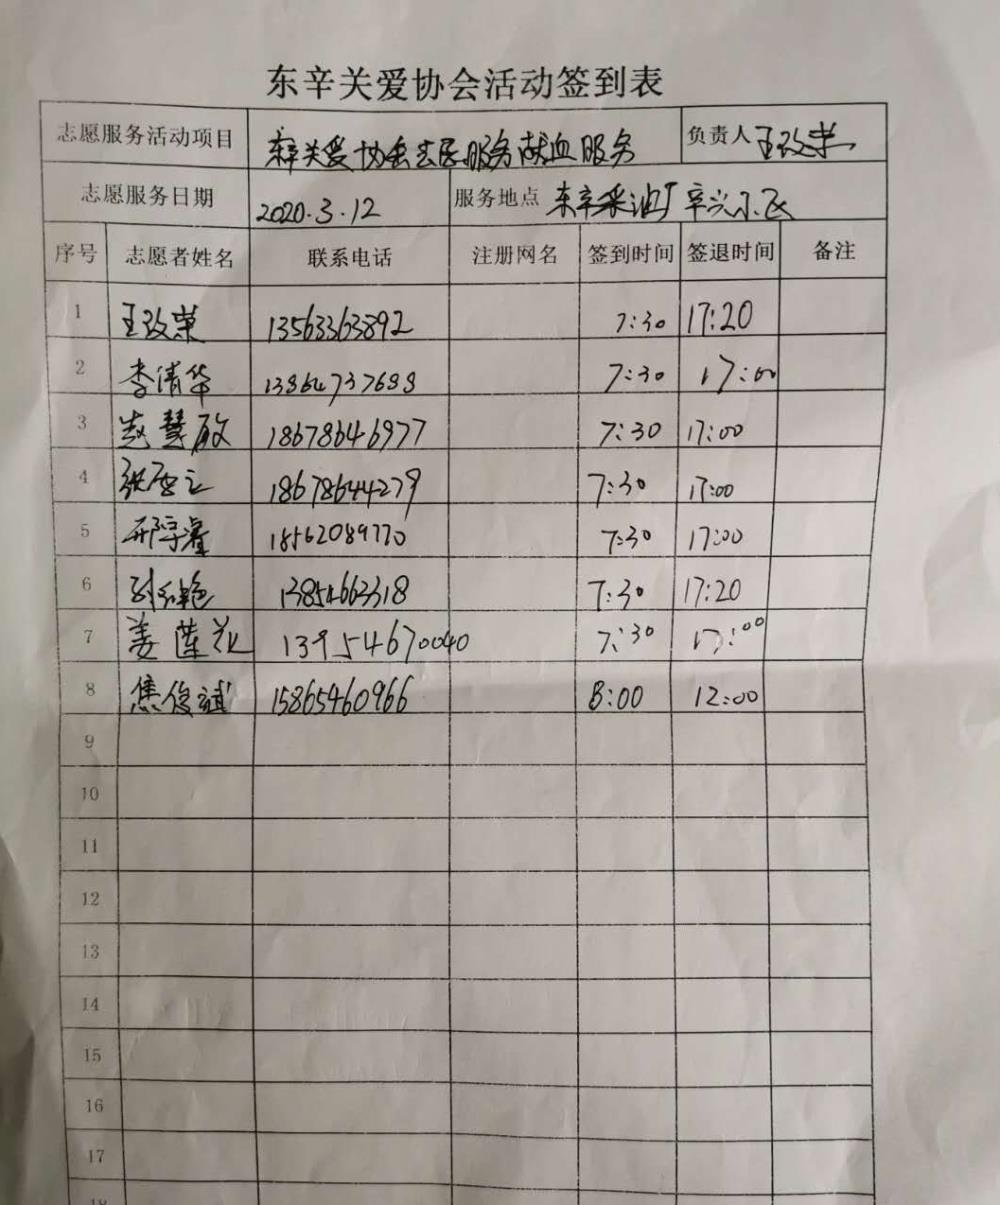 东辛关爱协会活动签到表
志愿服务活动项目 东辛关爱协会志愿服务献血服务 负责人 王改荣
志愿服务日期 2020.3.12 服务地点 东辛采油厂辛兴小区
序号 志愿者姓名 联系电话 注册网名 签到时间 签退时间 备注
1 王改荣 13563363892 7:30 17:20
2 李清华 13864737688 7:30 17:00
3 赵慧敏 18678646977 7:30 17:00
4 张 18678644279 7:30 17:00
5 邢宇 18562089770 7:30 17:00
6 刘艳 13854663318 7:30 17:20
7 姜莲花 13954670040 7:30 17:00
8 焦俊斌 15865460966 8:00 12:00
9
10
11
12
13
14
15
16
17
18